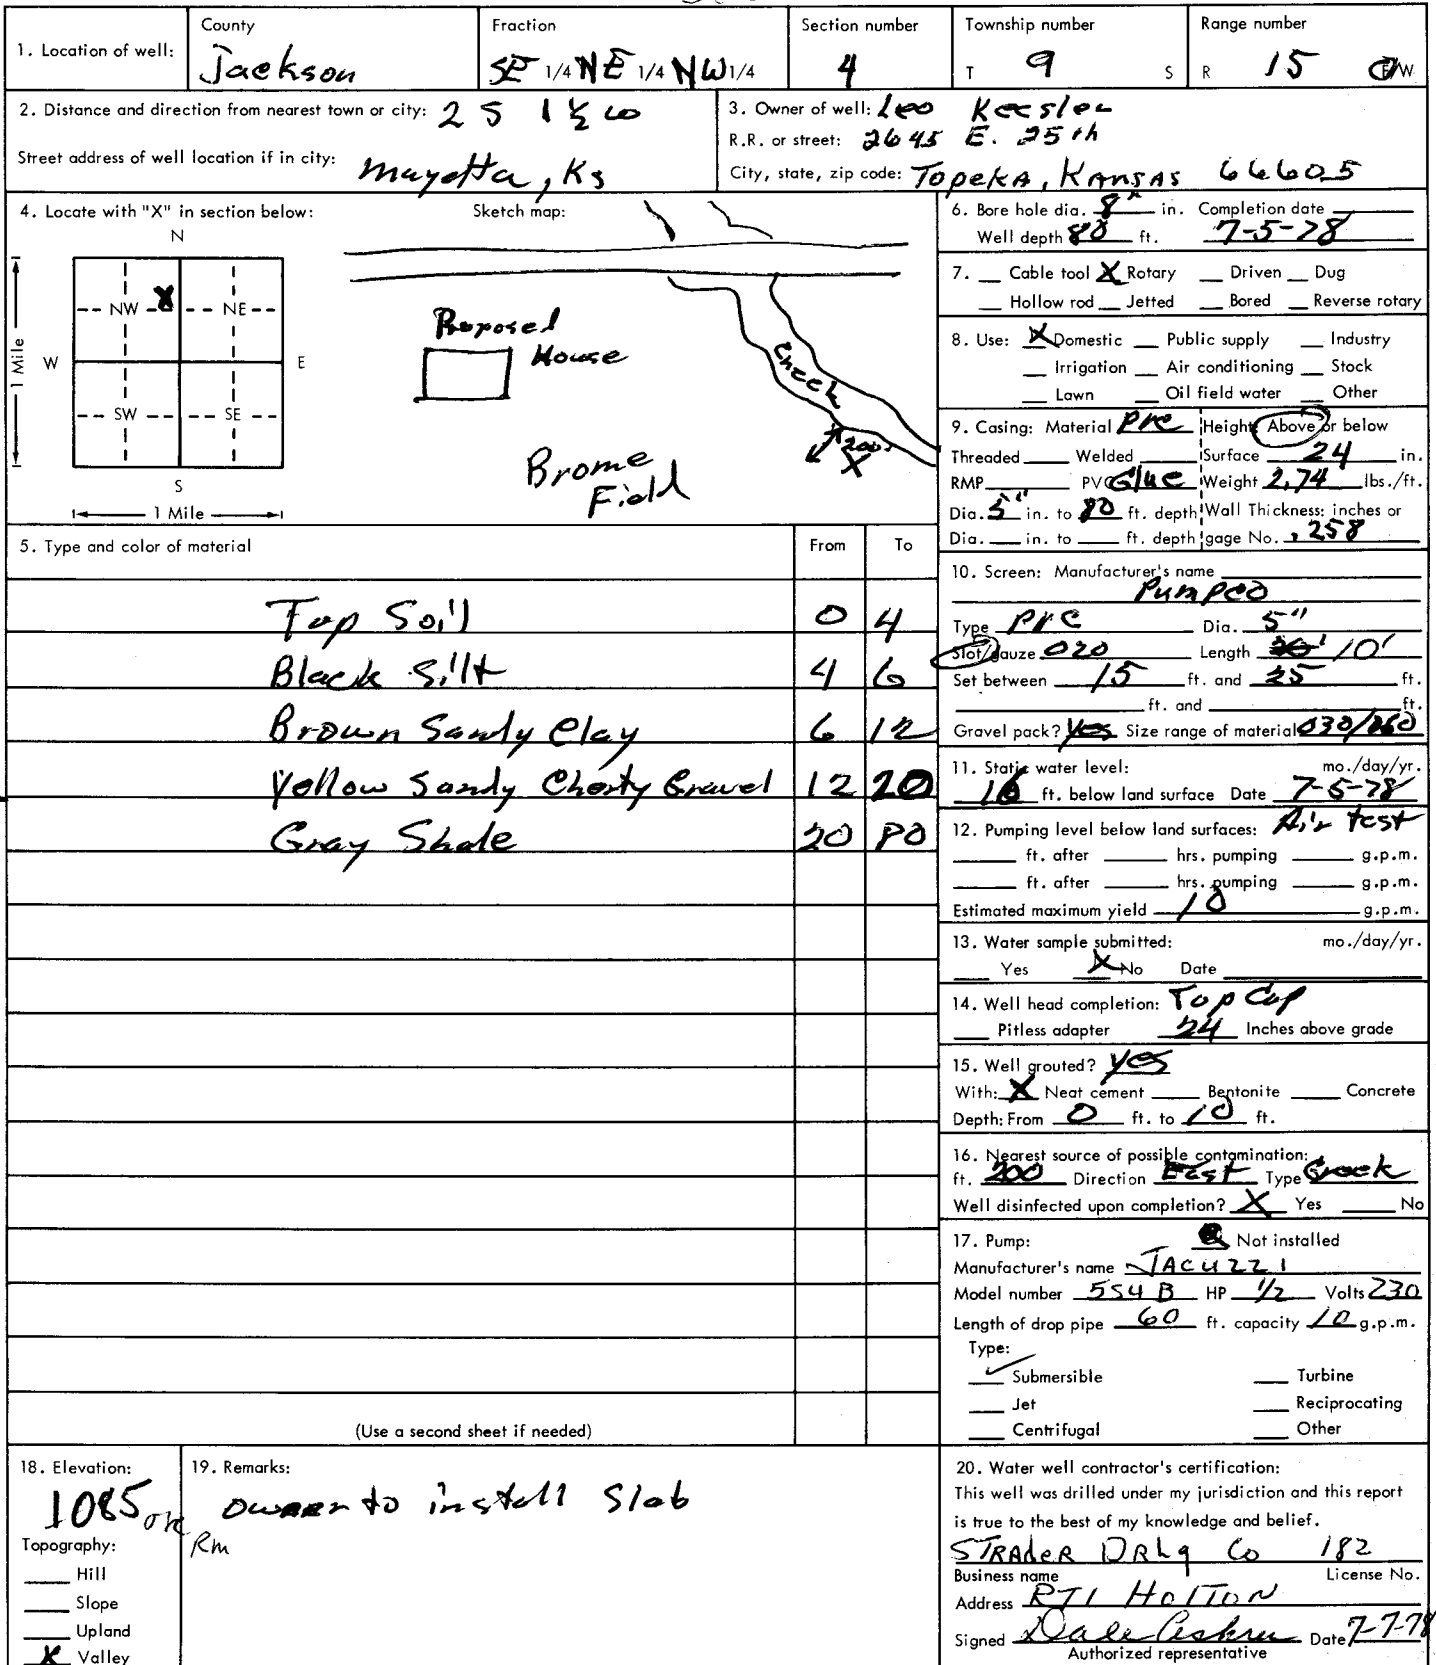 County Fraction Section number Township number Range number
1. Location of well: Jackson SE 1/4 NE 1/4 NW 1/4 4 T 9 S R 15 E/W
2. Distance and direction from nearest town or city: 2 S 1 ½ W
Street address of well location if in city: Mayetta, Ks
3. Owner of well: Leo Keesler
R.R. or street: 2645 E. 25th
City, state, zip code: Topeka, Kansas 66605
4. Locate with "X" in section below: Sketch map:
N
NW NE
W E
SW SE
S
1 Mile
1 Mile
Proposed
House
Creek
200'
X
Brome
Field
5. Type and color of material From To
Top Soil 0 4
Black Silt 4 6
Brown Sandy Clay 6 12
Yellow Sandy Cherty Gravel 12 20
Gray Shale 20 80
(Use a second sheet if needed)
6. Bore hole dia. 8" in. Completion date
Well depth 80 ft. 7-5-78
7. __ Cable tool X Rotary __ Driven __ Dug
__ Hollow rod __ Jetted __ Bored __ Reverse rotary
8. Use: X Domestic __ Public supply __ Industry
__ Irrigation __ Air conditioning __ Stock
__ Lawn __ Oil field water __ Other
9. Casing: Material PVC Height: Above or below
Threaded __ Welded __ Surface 24 in.
RMP __ PVC Glue Weight 2.74 lbs./ft.
Dia. 5" in. to 80 ft. depth Wall Thickness: inches or
Dia. __ in. to __ ft. depth gage No. .258
10. Screen: Manufacturer's name
Pumpco
Type PVC Dia. 5"
Slot/gauze 020 Length 10'
Set between 15 ft. and 25 ft.
__ ft. and __ ft.
Gravel pack? Yes Size range of material 030/060
11. Static water level: mo./day/yr.
16 ft. below land surface Date 7-5-78
12. Pumping level below land surfaces: Air test
__ ft. after __ hrs. pumping __ g.p.m.
__ ft. after __ hrs. pumping __ g.p.m.
Estimated maximum yield 10 g.p.m.
13. Water sample submitted: mo./day/yr.
__ Yes X No Date
14. Well head completion: Top Cap
__ Pitless adapter 24 Inches above grade
15. Well grouted? Yes
With: X Neat cement __ Bentonite __ Concrete
Depth: From 0 ft. to 10 ft.
16. Nearest source of possible contamination:
ft. 200 Direction East Type Creek
Well disinfected upon completion? X Yes __ No
17. Pump: Not installed
Manufacturer's name Jacuzzi
Model number 5S4B HP 1/2 Volts 230
Length of drop pipe 60 ft. capacity 10 g.p.m.
Type:
✓ Submersible __ Turbine
__ Jet __ Reciprocating
__ Centrifugal __ Other
18. Elevation:
1085
Topography:
__ Hill
__ Slope
__ Upland
X Valley
19. Remarks:
Owner to install Slab
Rm
20. Water well contractor's certification:
This well was drilled under my jurisdiction and this report
is true to the best of my knowledge and belief.
Strader Drlg Co 182
Business name License No.
Address RT1 Holton
Signed Dale Date 7-7-78
Authorized representative